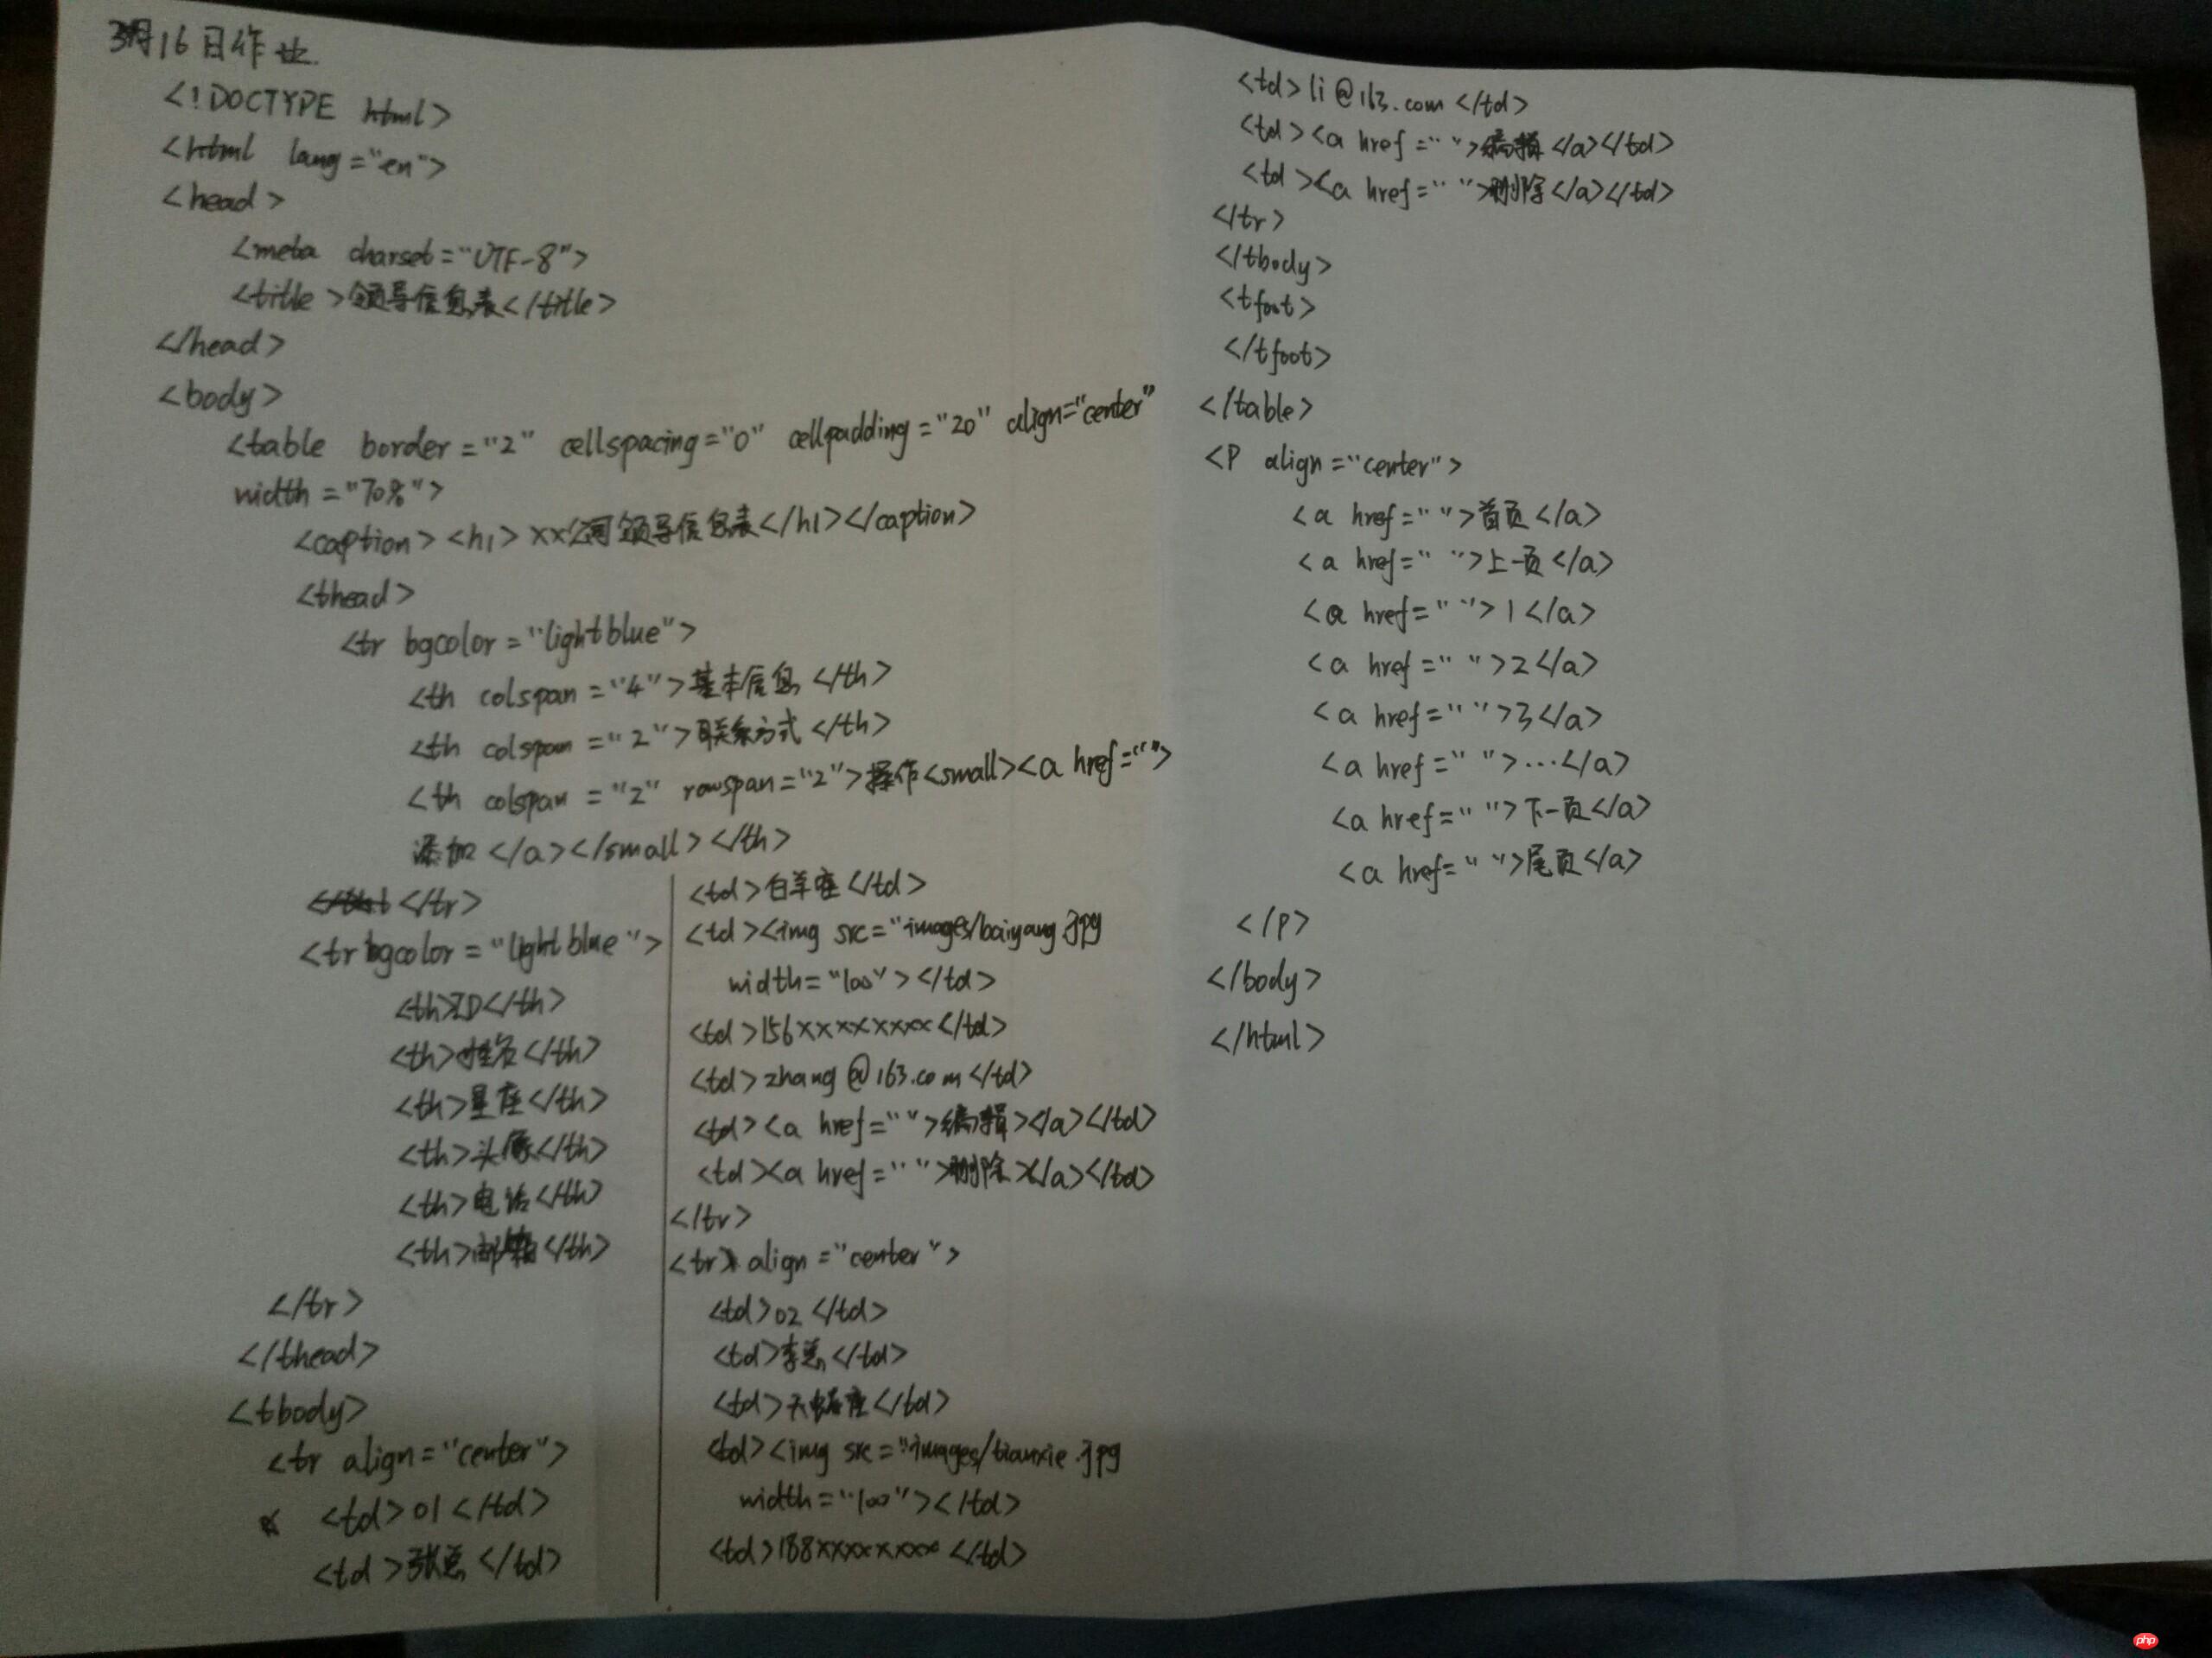 3月16日作业
<!DOCTYPE html>
<html lang="en">
<head>
<meta charset="UTF-8">
<title>领导信息表</title>
</head>
<body>
<table border="2" cellspacing="0" cellpadding="20" align="center"
width="70%">
<caption><h1>xx公司领导信息表</h1></caption>
<thead>
<tr bgcolor="lightblue">
<th colspan="4">基本信息</th>
<th colspan="2">联系方式</th>
<th colspan="2" rowspan="2">操作<small><a href="">
添加</a></small></th>
</tr>
<tr bgcolor="lightblue">
<th>ID</th>
<th>姓名</th>
<th>星座</th>
<th>头像</th>
<th>电话</th>
<th>邮箱</th>
</tr>
</thead>
<tbody>
<tr align="center">
<td>01</td>
<td>张总</td>
<td>白羊座</td>
<td><img src="images/baiyang.jpg
width="100"></td>
<td>156xxxxxxxx</td>
<td>zhang@163.com</td>
<td><a href="">编辑></a></td>
<td><a href="">删除></a></td>
</tr>
<tr> align="center">
<td>02</td>
<td>李总</td>
<td>天蝎座</td>
<td><img src="images/tianxie.jpg
width="100"></td>
<td>188xxxxxxxx</td>
<td>li@163.com</td>
<td><a href="">编辑</a></td>
<td><a href="">删除</a></td>
</tr>
</tbody>
<tfoot>
</tfoot>
</table>
<P align="center">
<a href="">首页</a>
<a href="">上一页</a>
<a href="">1</a>
<a href="">2</a>
<a href="">3</a>
<a href="">...</a>
<a href="">下一页</a>
<a href="">尾页</a>
</P>
</body>
</html>
php